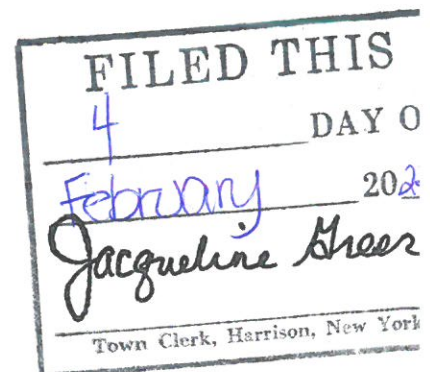 FILED THIS
4 DAY O
February 202
Jacqueline Greer
Town Clerk, Harrison, New York